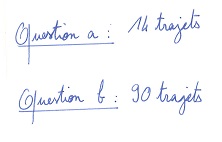 Question a : 14 trajets
Question b : 90 trajets